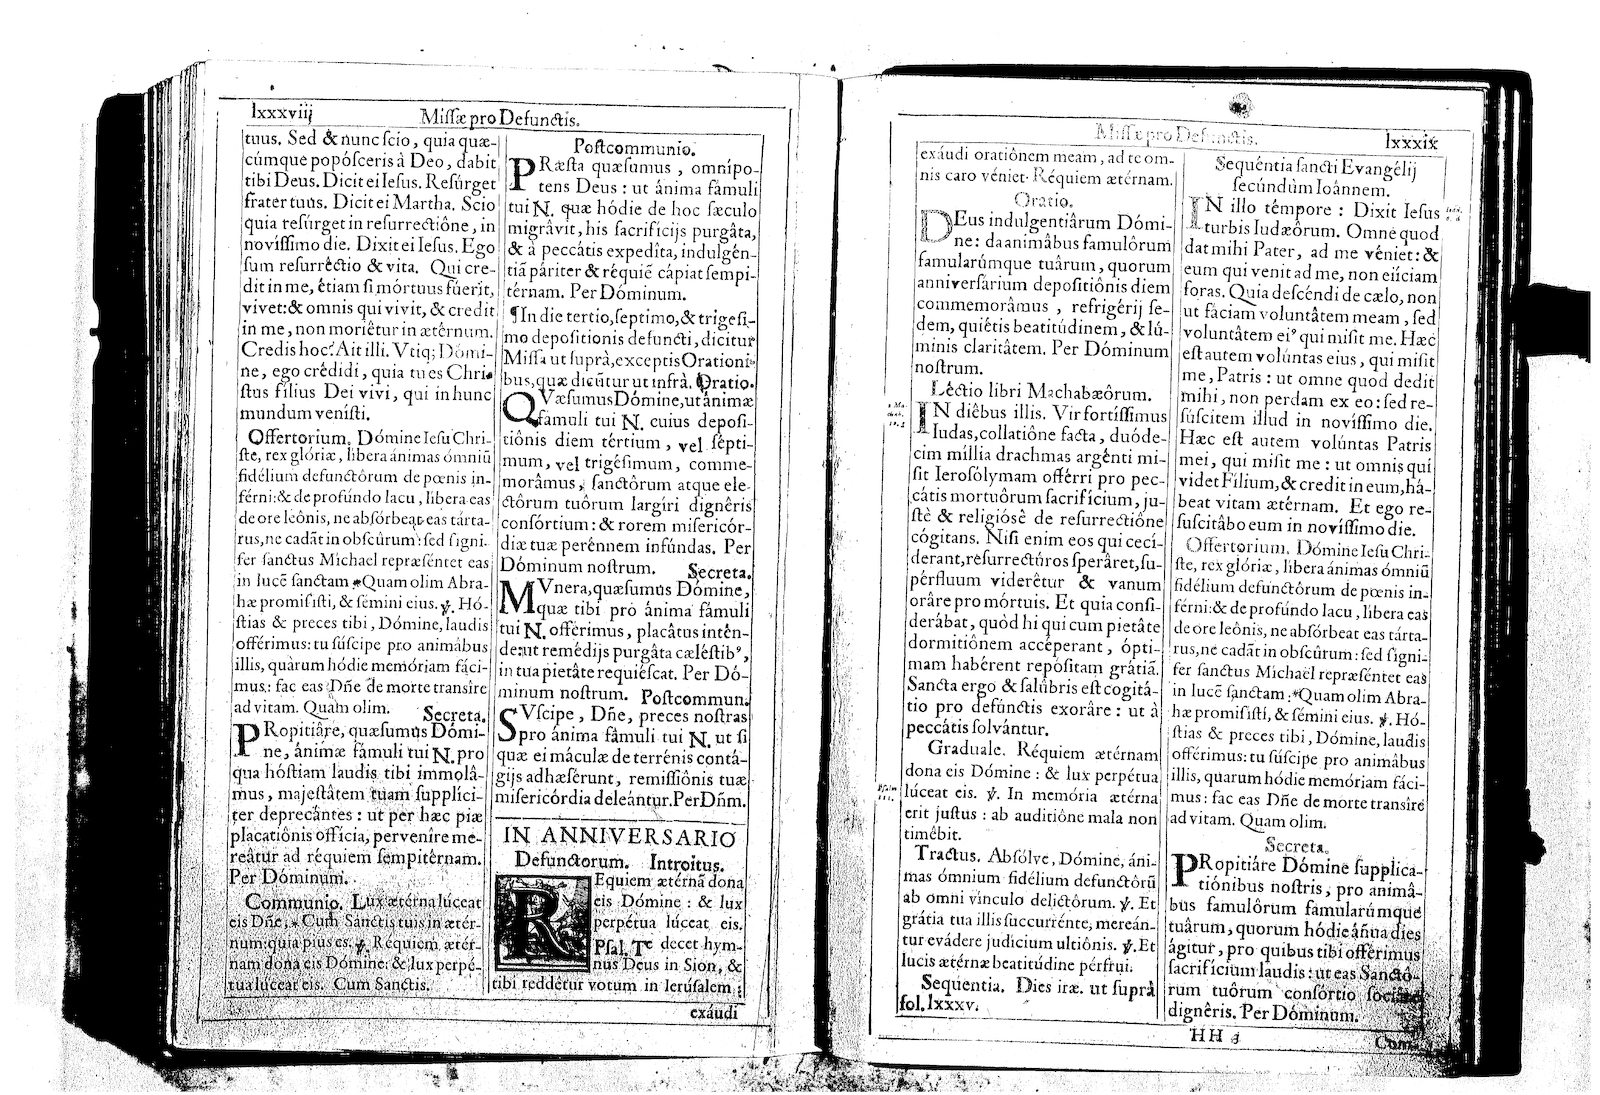 lxxxviij
Missæ pro Defunctis.
tuus. Sed & nunc scio, quia quæ-
cúmque popósceris à Deo, dabit
tibi Deus. Dicit ei Iesus. Resúrget
frater tuus. Dicit ei Martha. Scio
quia resúrget in resurrectiône, in
novíssimo die. Dixit ei Iesus. Ego
sum resurréctio & vita. Qui cre-
dit in me, étiam si mórtuus fúerit,
vivet: & omnis qui vivit, & credit
in me, non moriêtur in ætérnum.
Credis hoc? Ait illi. Vtiq; Dómi-
ne, ego crédidi, quia tu es Chri-
stus fílius Dei vivi, qui in hunc
mundum venísti.
Offertorium. Dómine Iesu Chri-
ste, rex glóriæ, libera ánimas ómniū
fidélium defunctôrum de pœnis in-
férni: & de profúndo lacu, libera eas
de ore leônis, ne absórbeat eas tárta-
rus, ne cadāt in obscûrum: sed signi-
fer sanctus Michael repræséntet eas
in lucē sanctam * Quam olim Abra-
hæ promisísti, & sémini eius. ℣. Hó-
stias & preces tibi, Dómine, laudis
offérimus: tu súscipe pro animâbus
illis, quárum hódie memóriam fáci-
mus: fac eas Dñe de morte transíre
ad vitam. Quam olim.
Secreta.
PRopitiâre, quæsumus Dómi-
ne, ánimæ fámuli tui N. pro
qua hóstiam laudis tibi immolâ-
mus, majestâtem tuam supplíci-
ter deprecántes: ut per hæc piæ
placatiônis officia, perveníre me-
reâtur ad réquiem sempitérnam.
Per Dóminum.
Communio. Lux ætérna lúceat
eis Dñe, * Cum Sanctis tuis in ætér-
num: quia pius es. ℣. Réquiem ætér-
nam dona eis Dómine: & lux perpé-
tua lúceat eis. Cum Sanctis.
Postcommunio.
PRæsta quæsumus, omnípo-
tens Deus: ut ánima fámuli
tui N. quæ hódie de hoc sæculo
migrâvit, his sacrificijs purgâta,
& à peccátis expedîta, indulgén-
tiā páriter & réquiē cápiat sempi-
térnam. Per Dóminum.
¶In die tertio, septimo, & trigesi-
mo depositionis defuncti, dicitur
Missa ut suprà, exceptis Orationi-
bus, quæ dicūtur ut infrà. Oratio.
QVæsumus Dómine, ut ánimæ
fámuli tui N. cuius deposi-
tiônis diem tértium, vel sépti-
mum, vel trigésimum, comme-
morâmus, sanctôrum atque ele-
ctôrum tuôrum largíri dignêris
consórtium: & rorem misericór-
diæ tuæ perénnem infúndas. Per
Dóminum nostrum. Secreta.
MVnera, quæsumus Dómine,
quæ tibi pro ánima fámuli
tui N. offérimus, placâtus intén-
de: ut remédijs purgâta cæléstibꝰ,
in tua pietâte requiéscat. Per Dó-
minum nostrum. Postcommun.
SVscipe, Dñe, preces nostras
pro ánima fámuli tui N. ut si
quæ ei máculæ de terrénis contá-
gijs adhæsérunt, remissiônis tuæ
misericórdia deleántur. Per Dñm.
IN ANNIVERSARIO
Defunctorum. Introitus.
REquiem ætérnā dona
eis Dómine: & lux
perpétua lúceat eis.
Psal. Te decet hym-
nus Deus in Sion, &
tibi reddétur votum in Ierúsalem:
exáudi
Missæ pro Defunctis.
lxxxix
exáudi oratiônem meam, ad te om-
nis caro véniet. Réquiem ætérnam.
Oratio.
DEus indulgentiârum Dómi-
ne: da animâbus famulôrum
famularúmque tuârum, quorum
anniversárium depositiônis diem
commemorâmus, refrigérij se-
dem, quiétis beatitúdinem, & lú-
minis claritâtem. Per Dóminum
nostrum.
Léctio libri Machabæôrum.
IN diêbus illis. Vir fortíssimus
Iudas, collatiône facta, duóde-
cim míllia drachmas argénti mi-
sit Ierosólymam offérri pro pec-
cátis mortuôrum sacrifícium, ju-
stè & religiósè de resurrectiône
cógitans. Nisi enim eos qui cecí-
derant, resurrectúros sperâret, su-
pérfluum viderêtur & vanum
orâre pro mórtuis. Et quia consi-
derâbat, quòd hi qui cum pietâte
dormitiônem accéperant, ópti-
mam habérent repósitam grátiā.
Sancta ergo & salúbris est cogitá-
tio pro defúnctis exorâre: ut à
peccátis solvántur.
Graduale. Réquiem ætérnam
dona eis Dómine: & lux perpétua
lúceat eis. ℣. In memória ætérna
erit justus: ab auditiône mala non
timébit.
Tractus. Absólve, Dómine, áni-
mas ómnium fidélium defunctôrū
ab omni vínculo delictórum. ℣. Et
grátia tua illis succurrénte, mereán-
tur evádere judícium ultiônis. ℣. Et
lucis ætérnæ beatitúdine pérfrui.
Sequentia. Dies iræ. ut suprà
fol. lxxxv.
Sequéntia sancti Evangélij
secúndùm Ioánnem.
IN illo témpore: Dixit Iesus
turbis Iudæórum. Omne quod
dat mihi Pater, ad me véniet: &
eum qui venit ad me, non eíiciam
foras. Quia descéndi de cælo, non
ut fáciam voluntâtem meam, sed
voluntâtem eiꝰ qui misit me. Hæc
est autem volúntas eius, qui misit
me, Patris: ut omne quod dedit
mihi, non perdam ex eo: sed re-
súscitem illud in novíssimo die.
Hæc est autem volúntas Patris
mei, qui misit me: ut omnis qui
videt Fílium, & credit in eum, há-
beat vitam ætérnam. Et ego re-
suscitâbo eum in novíssimo die.
Offertorium. Dómine Iesu Chri-
ste, rex glóriæ, libera ánimas ómniū
fidélium defunctôrum de pœnis in-
férni: & de profúndo lacu, libera eas
de ore leônis, ne absórbeat eas tárta-
rus, ne cadāt in obscûrum: sed signi-
fer sanctus Michaël repræséntet eas
in lucē sanctam: *Quam olim Abra-
hæ promisísti, & sémini eius. ℣. Hó-
stias & preces tibi, Dómine, laudis
offérimus: tu súscipe pro animâbus
illis, quarum hódie memóriam fáci-
mus: fac eas Dñe de morte transíre
ad vitam. Quam olim.
Secreta.
PRopitiáre Dómine supplica-
tiónibus nostris, pro animâ-
bus famulôrum famularúmque
tuârum, quorum hódie áñua dies
ágitur, pro quibus tibi offérimus
sacrifícium laudis: ut eas Sanctô-
rum tuôrum consórtio sociáre
dignêris. Per Dóminum.
HH 3
Com-